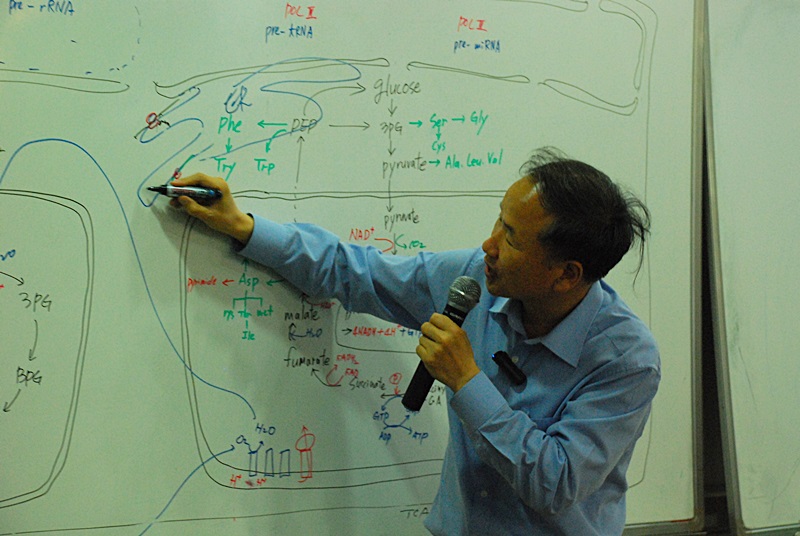 pre-rRNA
POL III
pre-tRNA
POL II
pre-miRNA
glucose
Phe ← PEP → 3PG → Ser → Gly
Cys
Try Trp pyruvate → Ala. Leu. Val
pyruvate
NAD⁺
CO₂
Asp
malate
H₂O
3PG
Ile
fumarate
FADH₂
FAD
Succinate
BPG
GTP
GA
ADP ATP
O₂ H₂O
H⁺ H⁺
TCA